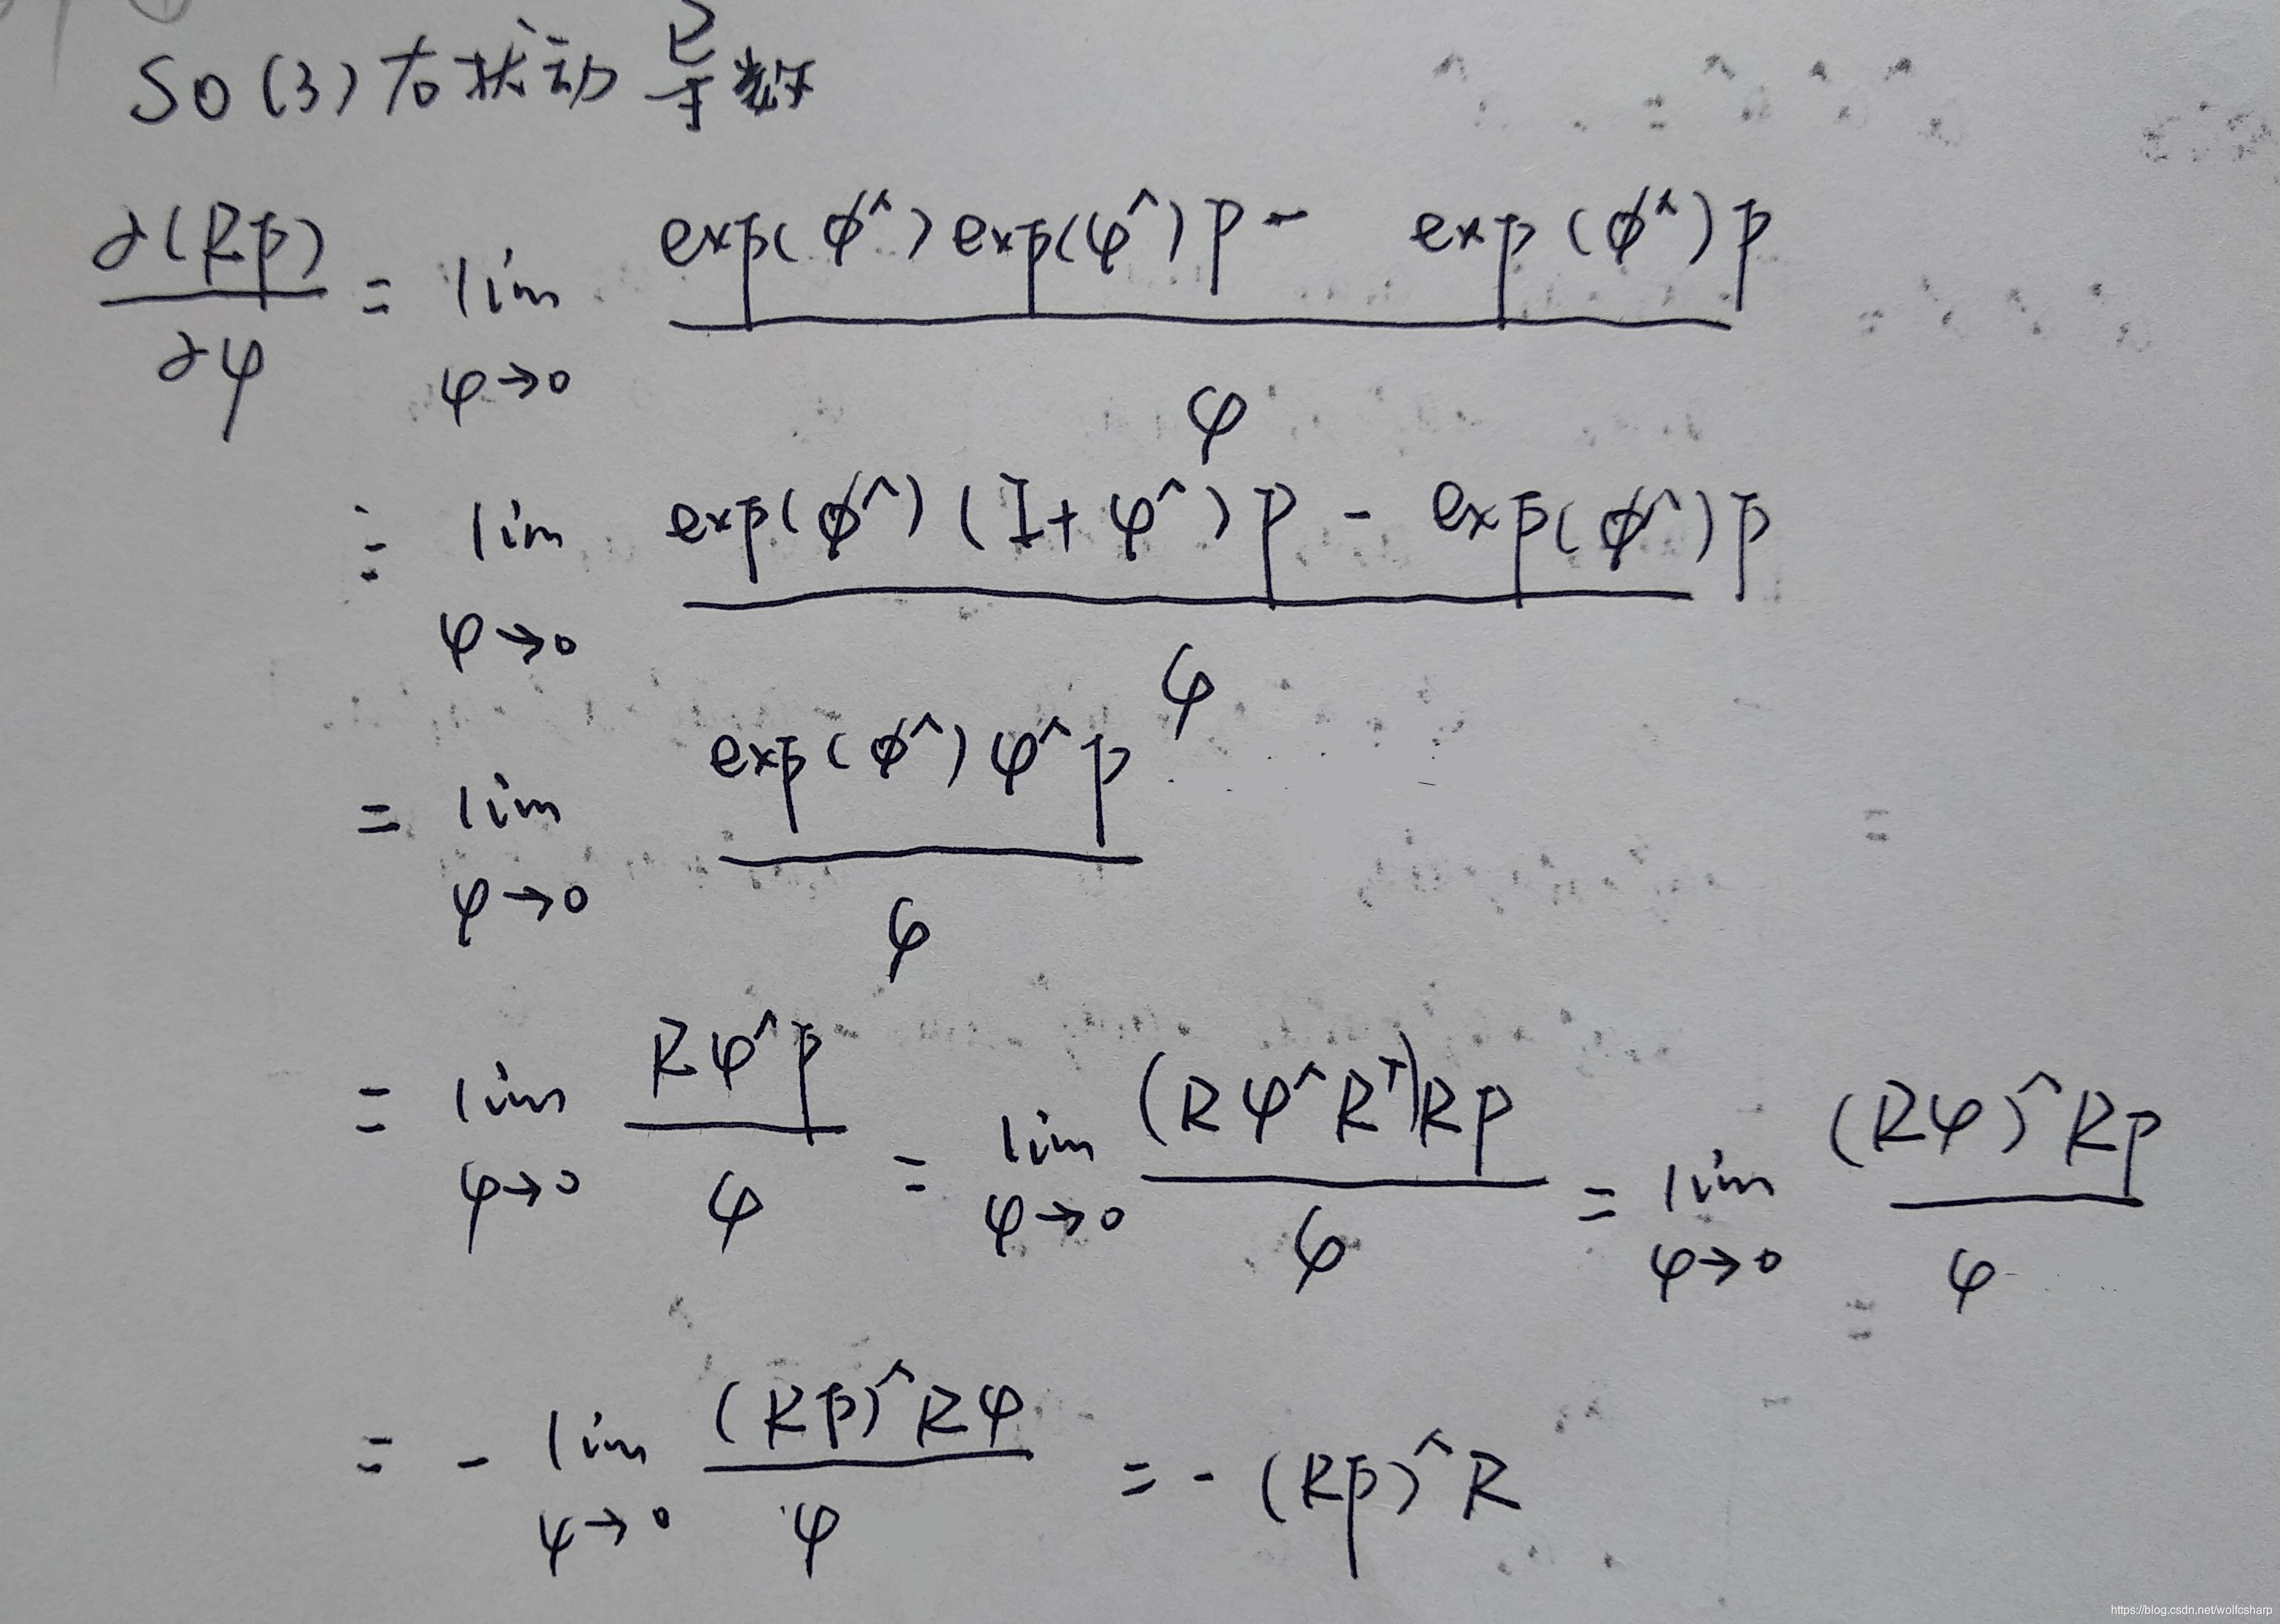 SO(3)右扰动导数
∂(Rp)/∂φ = lim φ→0 (exp(ϕ^)exp(φ^)p - exp(ϕ^)p)/φ
= lim φ→0 (exp(ϕ^)(I+φ^)p - exp(ϕ^)p)/φ
= lim φ→0 exp(ϕ^)φ^p/φ
= lim φ→0 Rφ^p/φ = lim φ→0 (Rφ^Rᵀ)Rp/φ = lim φ→0 (Rφ)^Rp/φ
= - lim φ→0 (Rp)^Rφ/φ = -(Rp)^R
https://blog.csdn.net/wolfcsharp